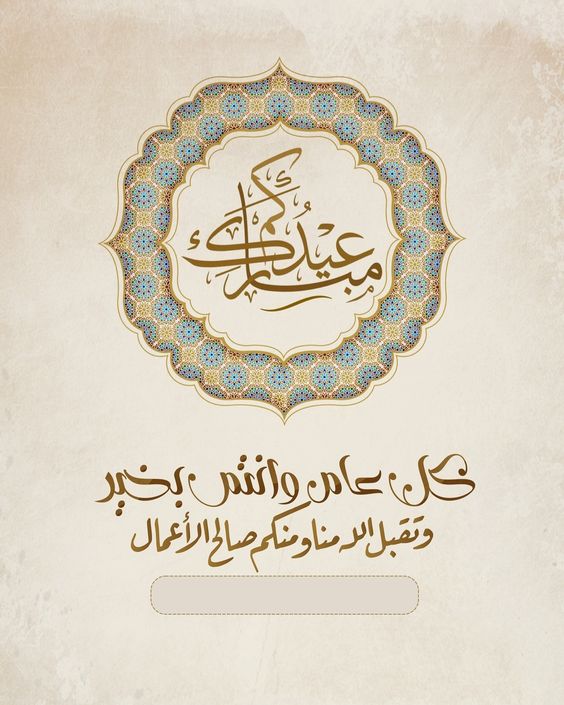 عيدكم مبارك
كل عام وانتم بخير
وتقبل الله منا ومنكم صالح الأعمال